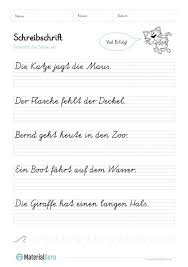 Name: Klasse: Datum:
Schreibschrift
Schreibe die Sätze ab.
Viel Erfolg!
Die Katze jagt die Maus.
Der Flasche fehlt der Deckel.
Bernd geht heute in den Zoo.
Ein Boot fährt auf dem Wasser.
Die Giraffe hat einen langen Hals.
MaterialGuru